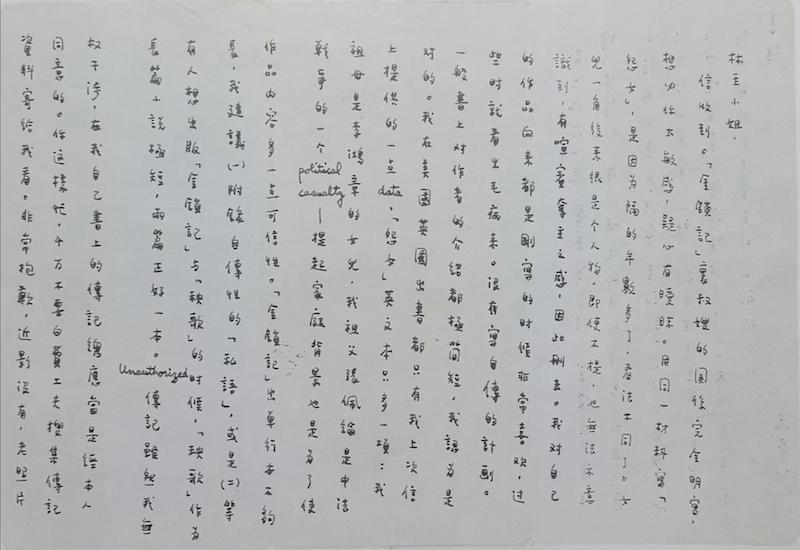 林主小姐，
信收到。「金鎖記」裏叔嫂的關係完全明寫，
想必你太敏感，疑心有曖昧。用同一材料寫「
怨女」，是因為隔的年數多了，看法不同了。女
兒一角後来很是个人物，即使不提，也無法不意
識到，有喧賓奪主之感，因此刪去。我对自己
的作品向来都是剛寫的时候非常喜欢，过
些时就看出毛病来。没有寫自傳的計劃。
一般書上对作者的介紹都極简短，我認為是
对的。我在美國英國出書都只有我上次信
上提供的一点data，「怨女」英文本只多一項：我
祖母是李鴻章的女兒，我祖父張佩綸是中法
戰争的一个political casualty—提起家庭背景也是為了使
作品内容多一点可信性。「金鎖記」出單行本不夠
長，我建議(一)附錄自傳性的「私語」，或是(二)等
有人想出版「金鎖記」与「秧歌」的时候，「秧歌」作為
長篇小說極短，兩篇正好一本。Unauthorized傳記雖然我無
权干涉，在我自己書上的傳記總應當是经本人
同意的。你這樣忙，千万不要白費工夫搜集傳記
資料寄给我看。非常抱歉，近影没有，老照片